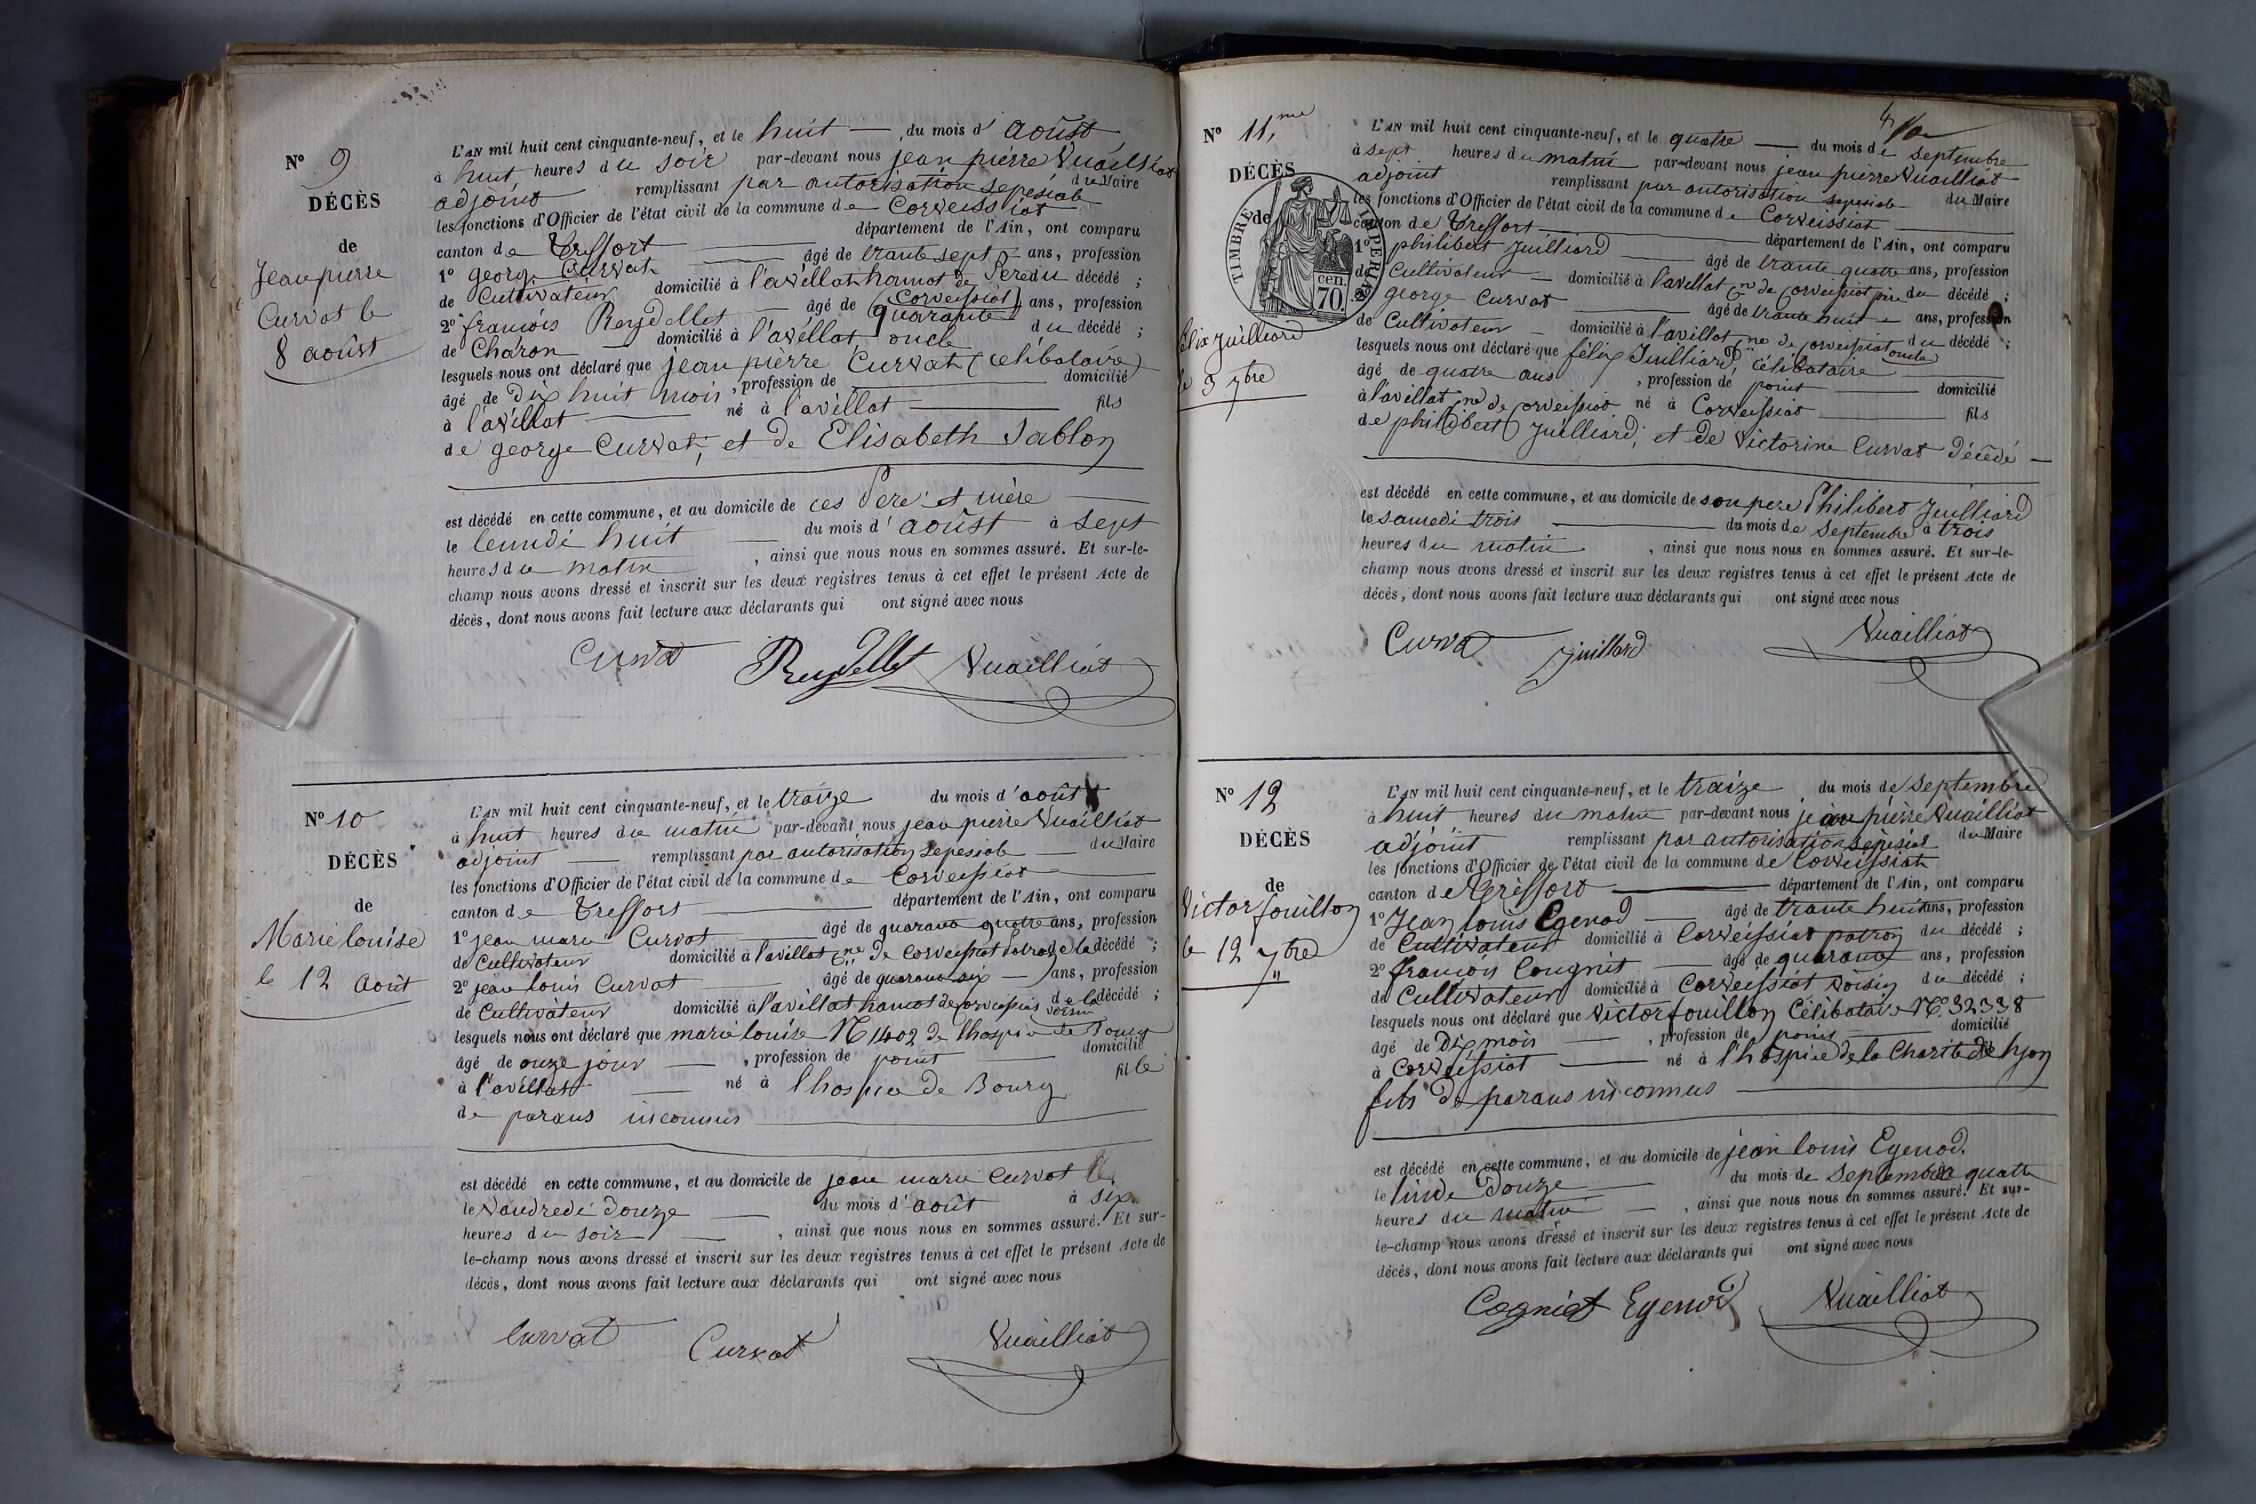 Nº 9
DÉCÈS
de
Jean pierre
Curvat le
8 août
L'AN mil huit cent cinquante-neuf, et le huit — du mois d' août
à huit heures du soir par-devant nous jean pierre Vuailliat
adjoint remplissant par autorisation sepésiale du Maire
les fonctions d'Officier de l'état civil de la commune de Corveissiat
canton de Treffort — département de l'Ain, ont comparu
1º george Curvat — âgé de trante sept — ans, profession
de Cultivateur domicilié à l'avéllat hamot de Corveissiat Pere du décédé ;
2º franсois Reydellet — âgé de quarante ans, profession
de Charon — domicilié à l'avéllat, oncle du décédé ;
lesquels nous ont déclaré que jean pierre Curvat (Célibataire)
âgé de Dix huit mois , profession de — domicilié
à l'avéllat — né à l'avéllat — fils
de george Curvat, et de Elisabeth Sablon
est décédé en cette commune, et au domicile de ces Pere et mère —
le leundi huit — du mois d' août à sept
heures du matin , ainsi que nous nous en sommes assuré. Et sur-le-
champ nous avons dressé et inscrit sur les deux registres tenus à cet effet le présent Acte de
décès, dont nous avons fait lecture aux déclarants qui ont signé avec nous
Curvat Reydellet Vuailliat
Nº 10
DÉCÈS
de
Marie louise
le 12 août
L'AN mil huit cent cinquante-neuf, et le traize du mois d' août
à huit heures du matin par-devant nous jean pierre Vuailliat
adjoint — remplissant par autorisation sepesiale — du Maire
les fonctions d'Officier de l'état civil de la commune de Corveissiat
canton de Treffort — département de l'Ain, ont comparu
1º jean marie Curvat — âgé de quarante quatre ans, profession
de Cultivateur domicilié à l'avéllat de Corveissiat de la décédé ;
2º jean louis Curvat — âgé de quarante six — ans, profession
de Cultivateur domicilié à l'avéllat hamot de Corveissiat voisin de la décédé ;
lesquels nous ont déclaré que marie louise Nº 1402 de lhospice de Bourg
âgé de onze jour — , profession de point — domicilié
à l'avéllat — né à lhospice de Bourg fille
de parans inconnus —
est décédé en cette commune, et au domicile de jean marie Curvat
le Vandredi douze — du mois d' août à six
heures du soir — , ainsi que nous nous en sommes assuré. Et sur-
le-champ nous avons dressé et inscrit sur les deux registres tenus à cet effet le présent Acte de
décès, dont nous avons fait lecture aux déclarants qui ont signé avec nous
Curvat Curvat Vuailliat
4
Nº 11,me
DÉCÈS
de
TIMBRE IMPERIAL
70 cen.
félix Juilliard
le 3 7bre
L'AN mil huit cent cinquante-neuf, et le quatre — du mois de septembre
à sept heures du matin par-devant nous jean pierre Vuailliat
adjoint remplissant par autorisation sepesiale du Maire
les fonctions d'Officier de l'état civil de la commune de Corveissiat
canton de Treffort — département de l'Ain, ont comparu
1º philibert Juilliard — âgé de trante quatre ans, profession
de Cultivateur — domicilié à l'avéllat de Corveissiat père du décédé ;
2º george Curvat — âgé de trante huit — ans, profession
de Cultivateur — domicilié à l'avéllat de Corveissiat oncle du décédé ;
lesquels nous ont déclaré que félix Juilliard, célibataire
âgé de quatre ans , profession de point — domicilié
à l'avéllat de Corveissiat né à Corveissiat — fils
de philibert Juilliard, et de Victorine Curvat Décédé —
est décédé en cette commune, et au domicile de son pere Philibert Juilliard
le samedi trois — du mois de septembre à trois
heures du matin , ainsi que nous nous en sommes assuré. Et sur-le-
champ nous avons dressé et inscrit sur les deux registres tenus à cet effet le présent Acte de
décès, dont nous avons fait lecture aux déclarants qui ont signé avec nous
Curvat Juillard Vuailliat
Nº 12
DÉCÈS
de
Victor fouillon
le 12 7bre
L'AN mil huit cent cinquante-neuf, et le traize du mois de septembre
à huit heures du matin par-devant nous jean pierre Vuailliat
adjoint remplissant par autorisation sepésiale du Maire
les fonctions d'Officier de l'état civil de la commune de Corveissiat
canton de Treffort — département de l'Ain, ont comparu
1º Jean louis Egenod — âgé de trante huit ans, profession
de Cultivateur domicilié à Corveissiat patron du décédé ;
2º franсois Cougnit — âgé de quarante ans, profession
de Cultivateur domicilié à Corveissiat voisin du décédé ;
lesquels nous ont déclaré que Victor fouillon Célibataire Nº 32338
âgé de Dix mois — , profession de point — domicilié
à Corveissiat — né à l'hospice de la Charité de lyon
fils de parans inconnus —
est décédé en cette commune, et au domicile de jean louis Egenod.
le lundi Douze — du mois de septembre quatre
heures du matin — , ainsi que nous nous en sommes assuré. Et sur-
le-champ nous avons dressé et inscrit sur les deux registres tenus à cet effet le présent Acte de
décès, dont nous avons fait lecture aux déclarants qui ont signé avec nous
Cogniat Egenod Vuailliat